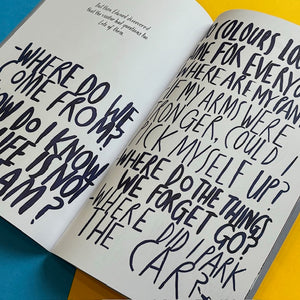 And then Edward discovered
that the visitor had questions too.
Lots of them.
-WHERE DO WE
COME FROM?
HOW DO I KNOW
LIFE IS NOT
A
COLOURS LOO
ME FOR EVERYO
WHERE ARE MY
MY ARMS WERE
COULD I
PICK MYSELF UP?
WHERE DO THE THINGS
WE FORGET GO?
-WHERE DID I PARK
THE CAR?